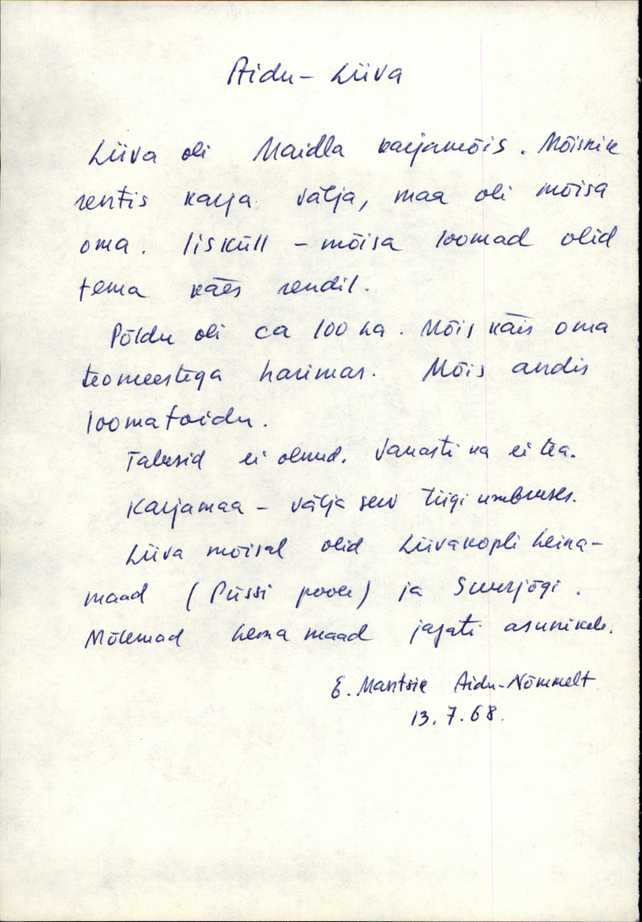 Aidu - Liiva
Liiva oli Maidla karjamõis. Mõisnik
rentis karja välja, maa oli mõisa
oma. Iisküll - mõisa loomad olid
tema käes rendil.
Põldu oli ca 100 ha. Mõis käis oma
teomeestega harimas. Mõis andis
loomatoidu.
Talusid ei olnud. Vanasti ka ei tea.
Karjamaa - välja serv tiigi umbruses.
Liiva mõisal olid Liivakopli heina-
maad (Püssi poole) ja Suurjõgi.
Mõlemad heinamaad jagati asunikele.
E. Mantsik Aidu-Nõmmelt
13.7.68.